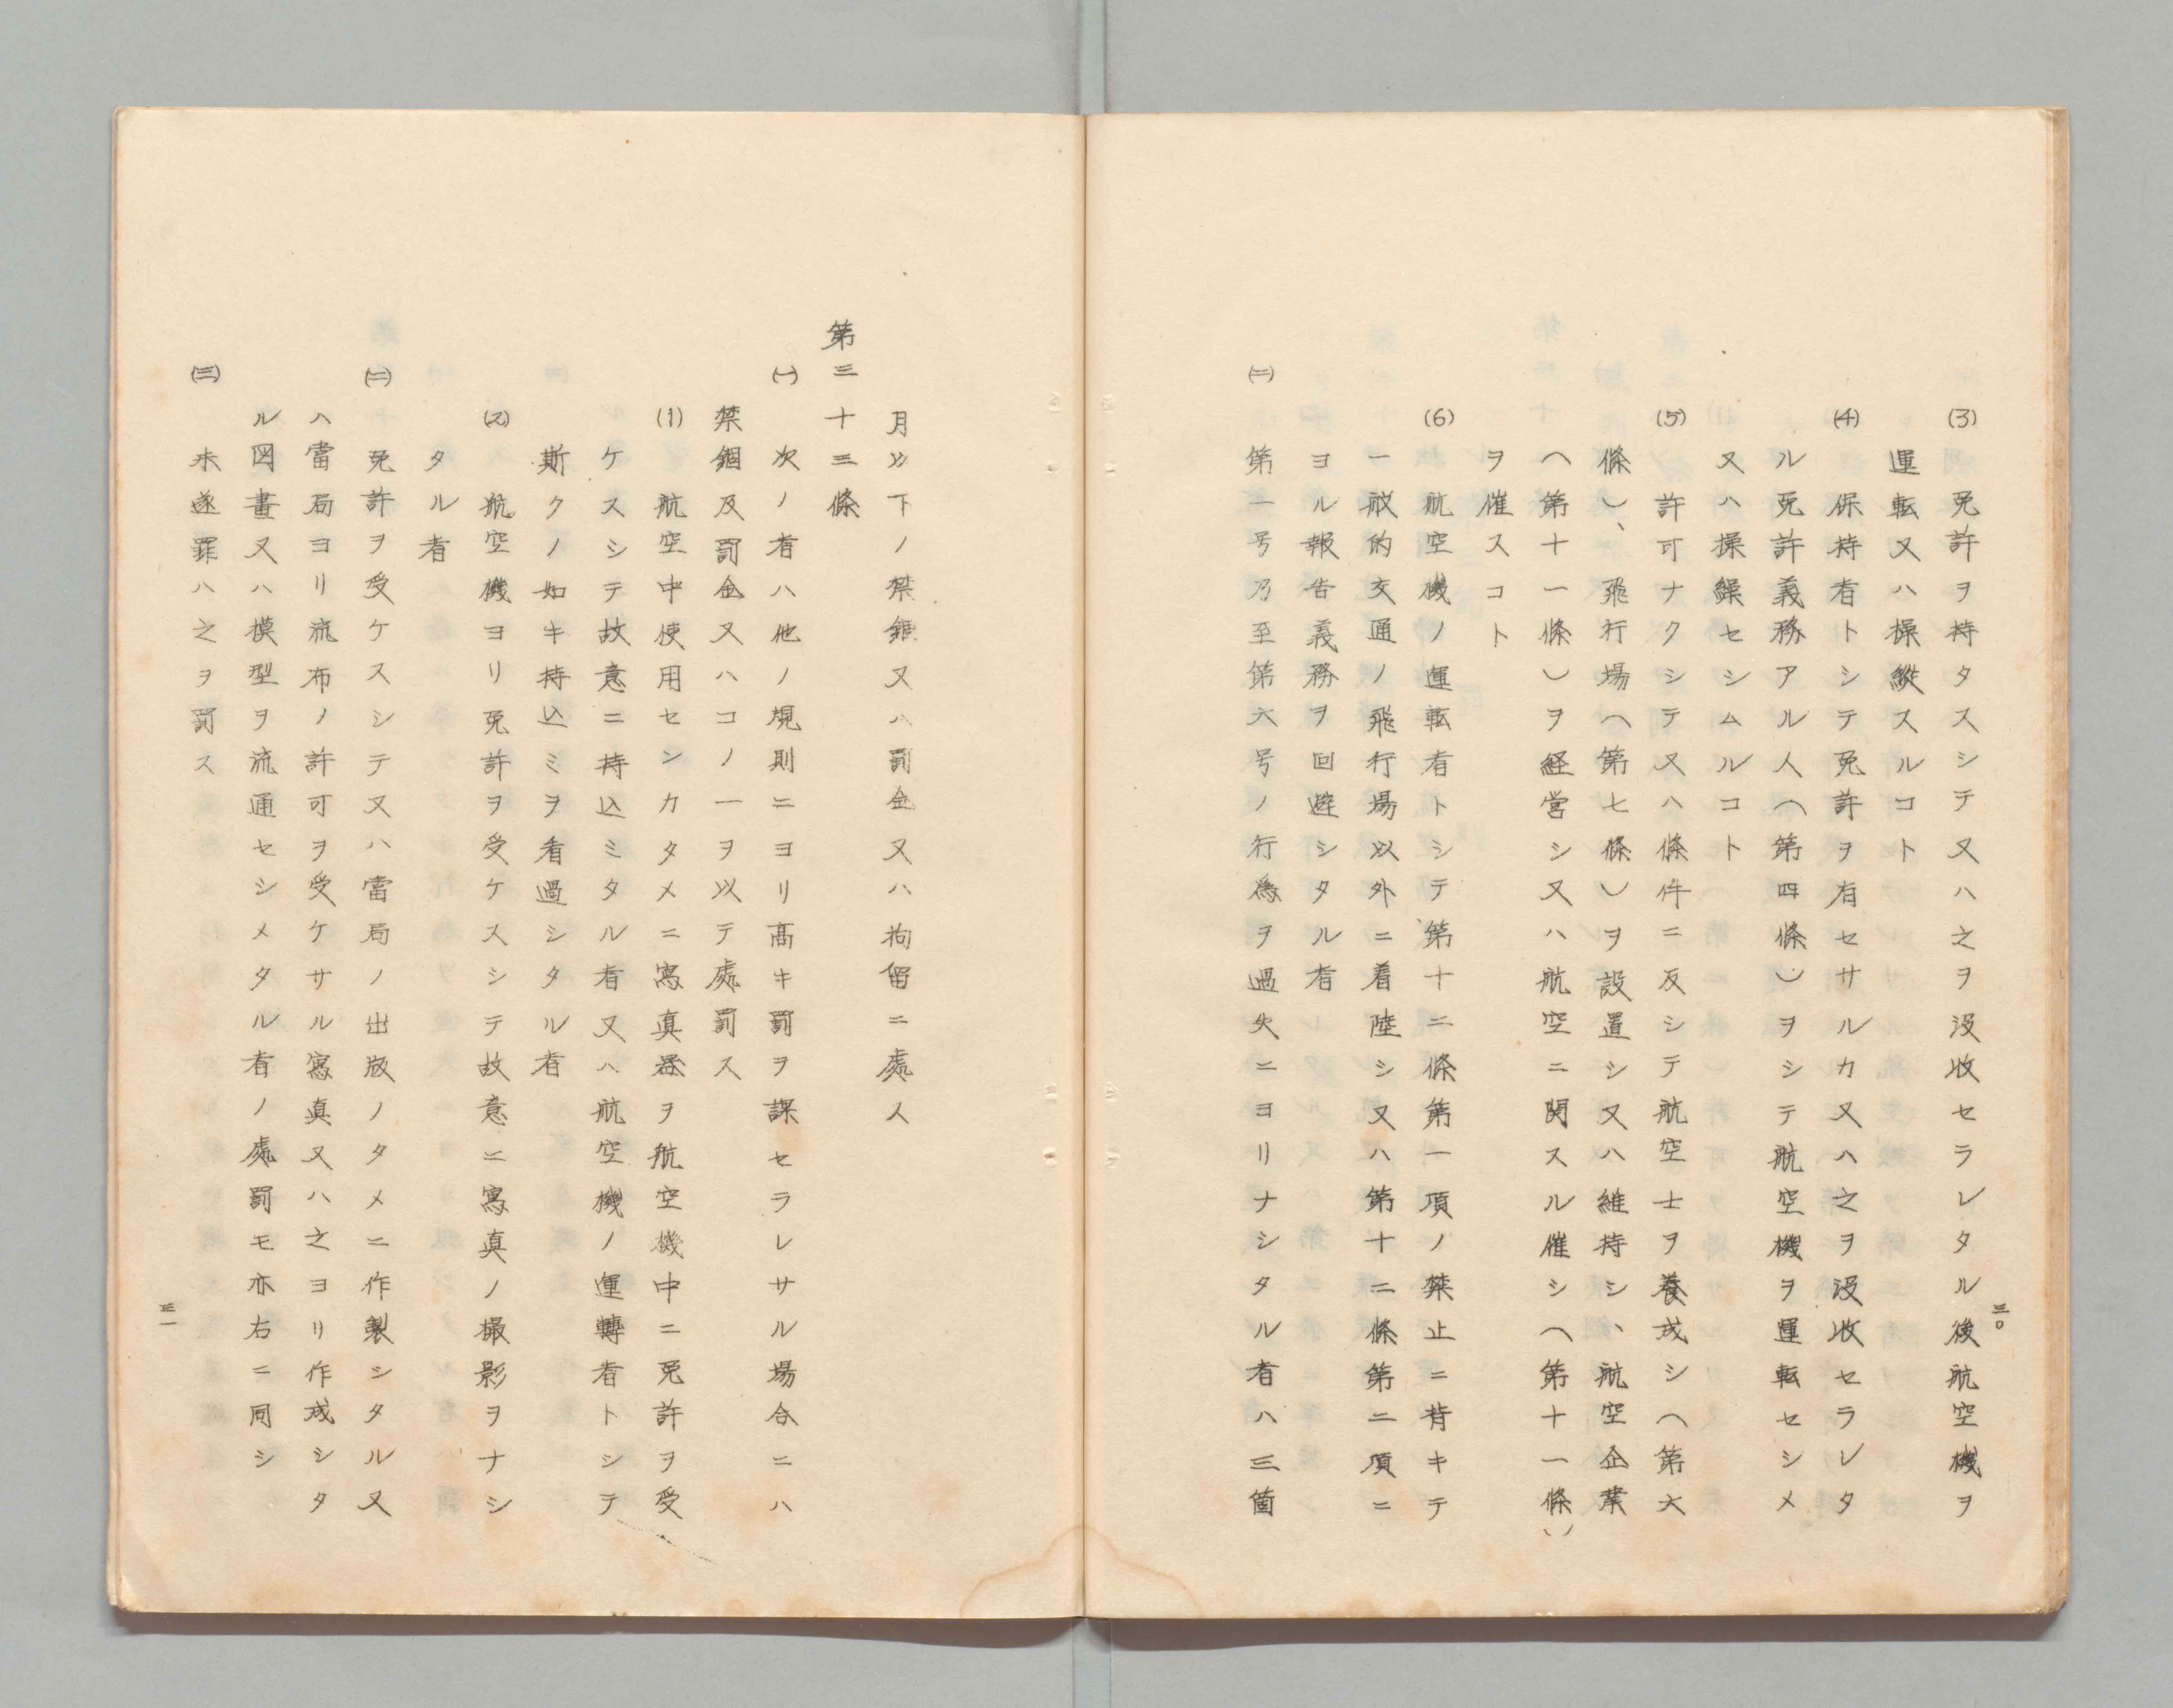 (3) 免許ヲ持タスシテ又ハ之ヲ沒收セラレタル後航空機ヲ
運転又ハ操縱スルコト
(4) 保持者トシテ免許ヲ有セサルカ又ハ之ヲ沒收セラレタ
ル免許義務アル人(第四條)ヲシテ航空機ヲ運転セシメ
又ハ操縲セシムルコト
(5) 許可ナクシテ又ハ條件ニ反シテ航空士ヲ養成シ(第六
條)、飛行場(第七條)ヲ設置シ又ハ維持シ、航空企業
(第十一條)ヲ経営シ又ハ航空ニ関スル催シ(第十一條)
ヲ催スコト
(6) 航空機ノ運転者トシテ第十二條第一項ノ禁止ニ背キテ
一般的交通ノ飛行場以外ニ着陸シ又ハ第十二條第二項ニ
ヨル報告義務ヲ回避シタル者
(二) 第一号乃至第六号ノ行為ヲ過失ニヨリナシタル者ハ三箇
三〇
月以下ノ禁錮又ハ罰金又ハ拘留ニ處ス
第三十三條
(一) 次ノ者ハ他ノ規則ニヨリ高キ罰ヲ課セラレサル場合ニハ
禁錮及罰金又ハコノ一ヲ以テ處罰ス
(1) 航空中使用センカタメニ寫真器ヲ航空機中ニ免許ヲ受
ケスシテ故意ニ持込ミタル者又ハ航空機ノ運轉者トシテ
斯クノ如キ持込ミヲ看過シタル者
(2) 航空機ヨリ免許ヲ受ケスシテ故意ニ寫真ノ撮影ヲナシ
タル者
(二) 免許ヲ受ケスシテ又ハ當局ノ出版ノタメニ作製シタル又
ハ當局ヨリ流布ノ許可ヲ受ケサル寫真又ハ之ヨリ作成シタ
ル図畫又ハ模型ヲ流通セシメタル者ノ處罰モ亦右ニ同シ
(三) 未遂罪ハ之ヲ罰ス
三一